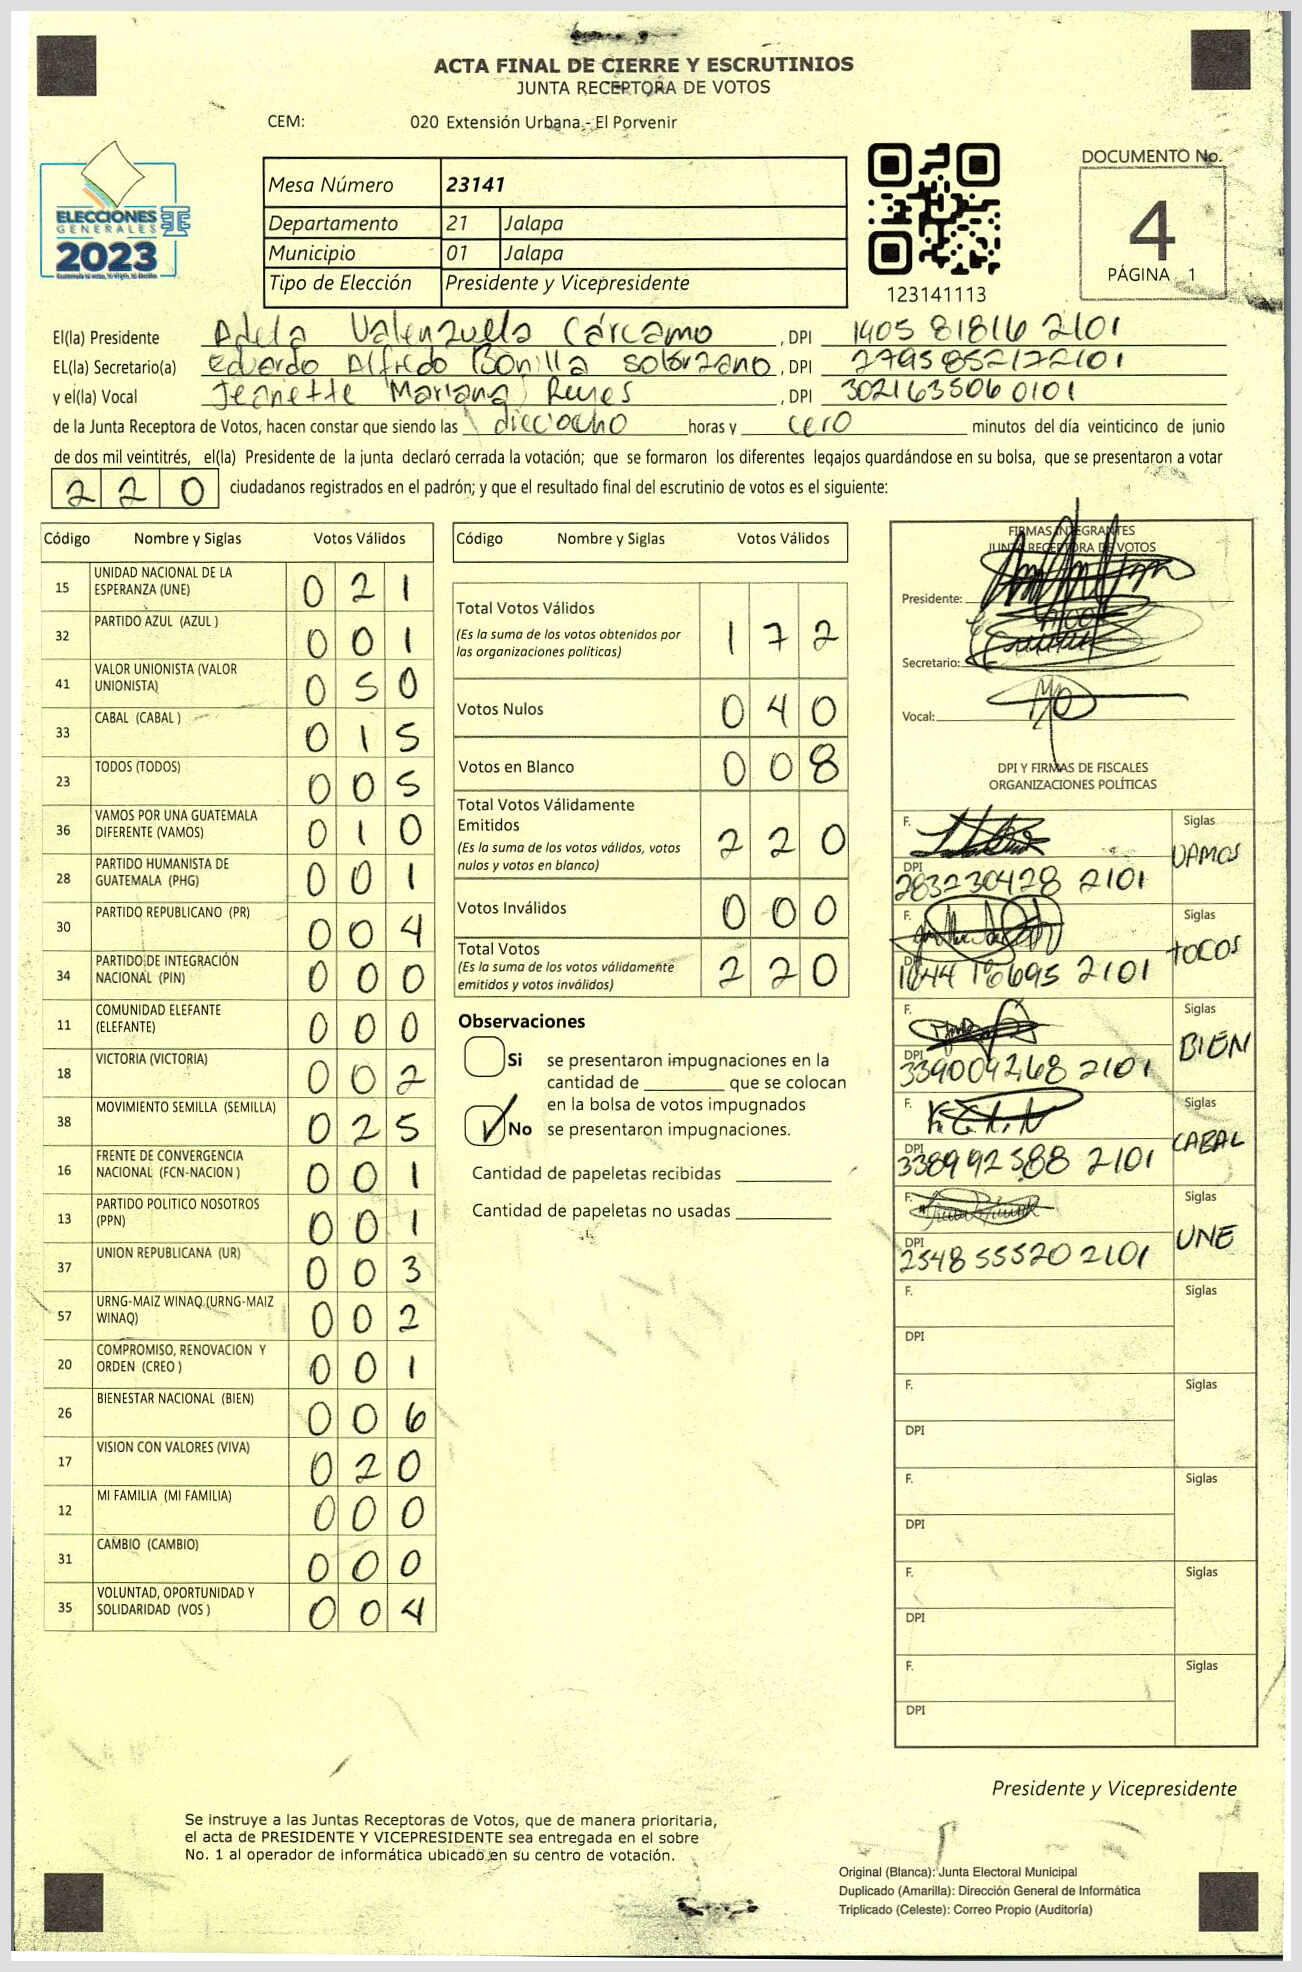 ACTA FINAL DE CIERRE Y ESCRUTINIOS
JUNTA RECEPTORA DE VOTOS
CEM: 020 Extensión Urbana - El Porvenir
ELECCIONES
GENERALES
2023
Mesa Número 23141
Departamento 21 Jalapa
Municipio 01 Jalapa
Tipo de Elección Presidente y Vicepresidente
123141113
DOCUMENTO No.
4
PÁGINA 1
El(la) Presidente Adela Valenzuela Cárcamo , DPI 1405 81816 2101
EL(la) Secretario(a) Eduardo Alfredo Bonilla Solorzano , DPI 2795852172101
y el(la) Vocal Jeanette Mariana Reyes , DPI 302163506 0101
de la Junta Receptora de Votos, hacen constar que siendo las dieciocho horas y cero minutos del día veinticinco de junio
de dos mil veintitrés, el(la) Presidente de la junta declaró cerrada la votación; que se formaron los diferentes legajos guardándose en su bolsa, que se presentaron a votar
220 ciudadanos registrados en el padrón; y que el resultado final del escrutinio de votos es el siguiente:
Código Nombre y Siglas Votos Válidos
15 UNIDAD NACIONAL DE LA ESPERANZA (UNE) 021
32 PARTIDO AZUL (AZUL ) 001
41 VALOR UNIONISTA (VALOR UNIONISTA) 050
33 CABAL (CABAL ) 015
23 TODOS (TODOS) 005
36 VAMOS POR UNA GUATEMALA DIFERENTE (VAMOS) 010
28 PARTIDO HUMANISTA DE GUATEMALA (PHG) 001
30 PARTIDO REPUBLICANO (PR) 004
34 PARTIDO DE INTEGRACIÓN NACIONAL (PIN) 000
11 COMUNIDAD ELEFANTE (ELEFANTE) 000
18 VICTORIA (VICTORIA) 002
38 MOVIMIENTO SEMILLA (SEMILLA) 025
16 FRENTE DE CONVERGENCIA NACIONAL (FCN-NACION ) 001
13 PARTIDO POLITICO NOSOTROS (PPN) 001
37 UNION REPUBLICANA (UR) 003
57 URNG-MAIZ WINAQ (URNG-MAIZ WINAQ) 002
20 COMPROMISO, RENOVACION Y ORDEN (CREO ) 001
26 BIENESTAR NACIONAL (BIEN) 006
17 VISION CON VALORES (VIVA) 020
12 MI FAMILIA (MI FAMILIA) 000
31 CAMBIO (CAMBIO) 000
35 VOLUNTAD, OPORTUNIDAD Y SOLIDARIDAD (VOS ) 004
Código Nombre y Siglas Votos Válidos
Total Votos Válidos 172
(Es la suma de los votos obtenidos por
las organizaciones políticas)
Votos Nulos 040
Votos en Blanco 008
Total Votos Válidamente
Emitidos 220
(Es la suma de los votos válidos, votos
nulos y votos en blanco)
Votos Inválidos 000
Total Votos 220
(Es la suma de los votos válidamente
emitidos y votos inválidos)
Observaciones
Si se presentaron impugnaciones en la
cantidad de ________ que se colocan
en la bolsa de votos impugnados
No se presentaron impugnaciones.
Cantidad de papeletas recibidas
Cantidad de papeletas no usadas
FIRMAS INTEGRANTES
JUNTA RECEPTORA DE VOTOS
Presidente:
Secretario:
Vocal:
DPI Y FIRMAS DE FISCALES
ORGANIZACIONES POLÍTICAS
F. Siglas VAMOS
DPI 283230428 2101
F. Siglas TODOS
DPI 1644 16695 2101
F. Siglas BIEN
DPI 339004268 2101
F. Siglas CABAL
DPI 338992588 2101
F. Siglas UNE
DPI 2548 55520 2101
F. Siglas
DPI
F. Siglas
DPI
F. Siglas
DPI
F. Siglas
DPI
F. Siglas
DPI
Presidente y Vicepresidente
Se instruye a las Juntas Receptoras de Votos, que de manera prioritaria,
el acta de PRESIDENTE Y VICEPRESIDENTE sea entregada en el sobre
No. 1 al operador de informática ubicado en su centro de votación.
Original (Blanca): Junta Electoral Municipal
Duplicado (Amarilla): Dirección General de Informática
Triplicado (Celeste): Correo Propio (Auditoría)